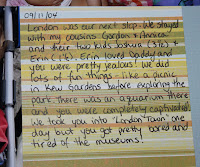 09/11/04
London was our next stop. We stayed
with my cousins Gordon & Anneca
and their two kids Joshua (3 1/2) &
Erin (1 1/2). Erin loved Daddy and
you were pretty jealous! We did
lots of fun things - like a picnic
in Kew Gardens before exploring the
park. There was an aquarium there
and you were completely captivated!
We took you into "London Town" one
day but you got pretty bored and
tired of the museums!